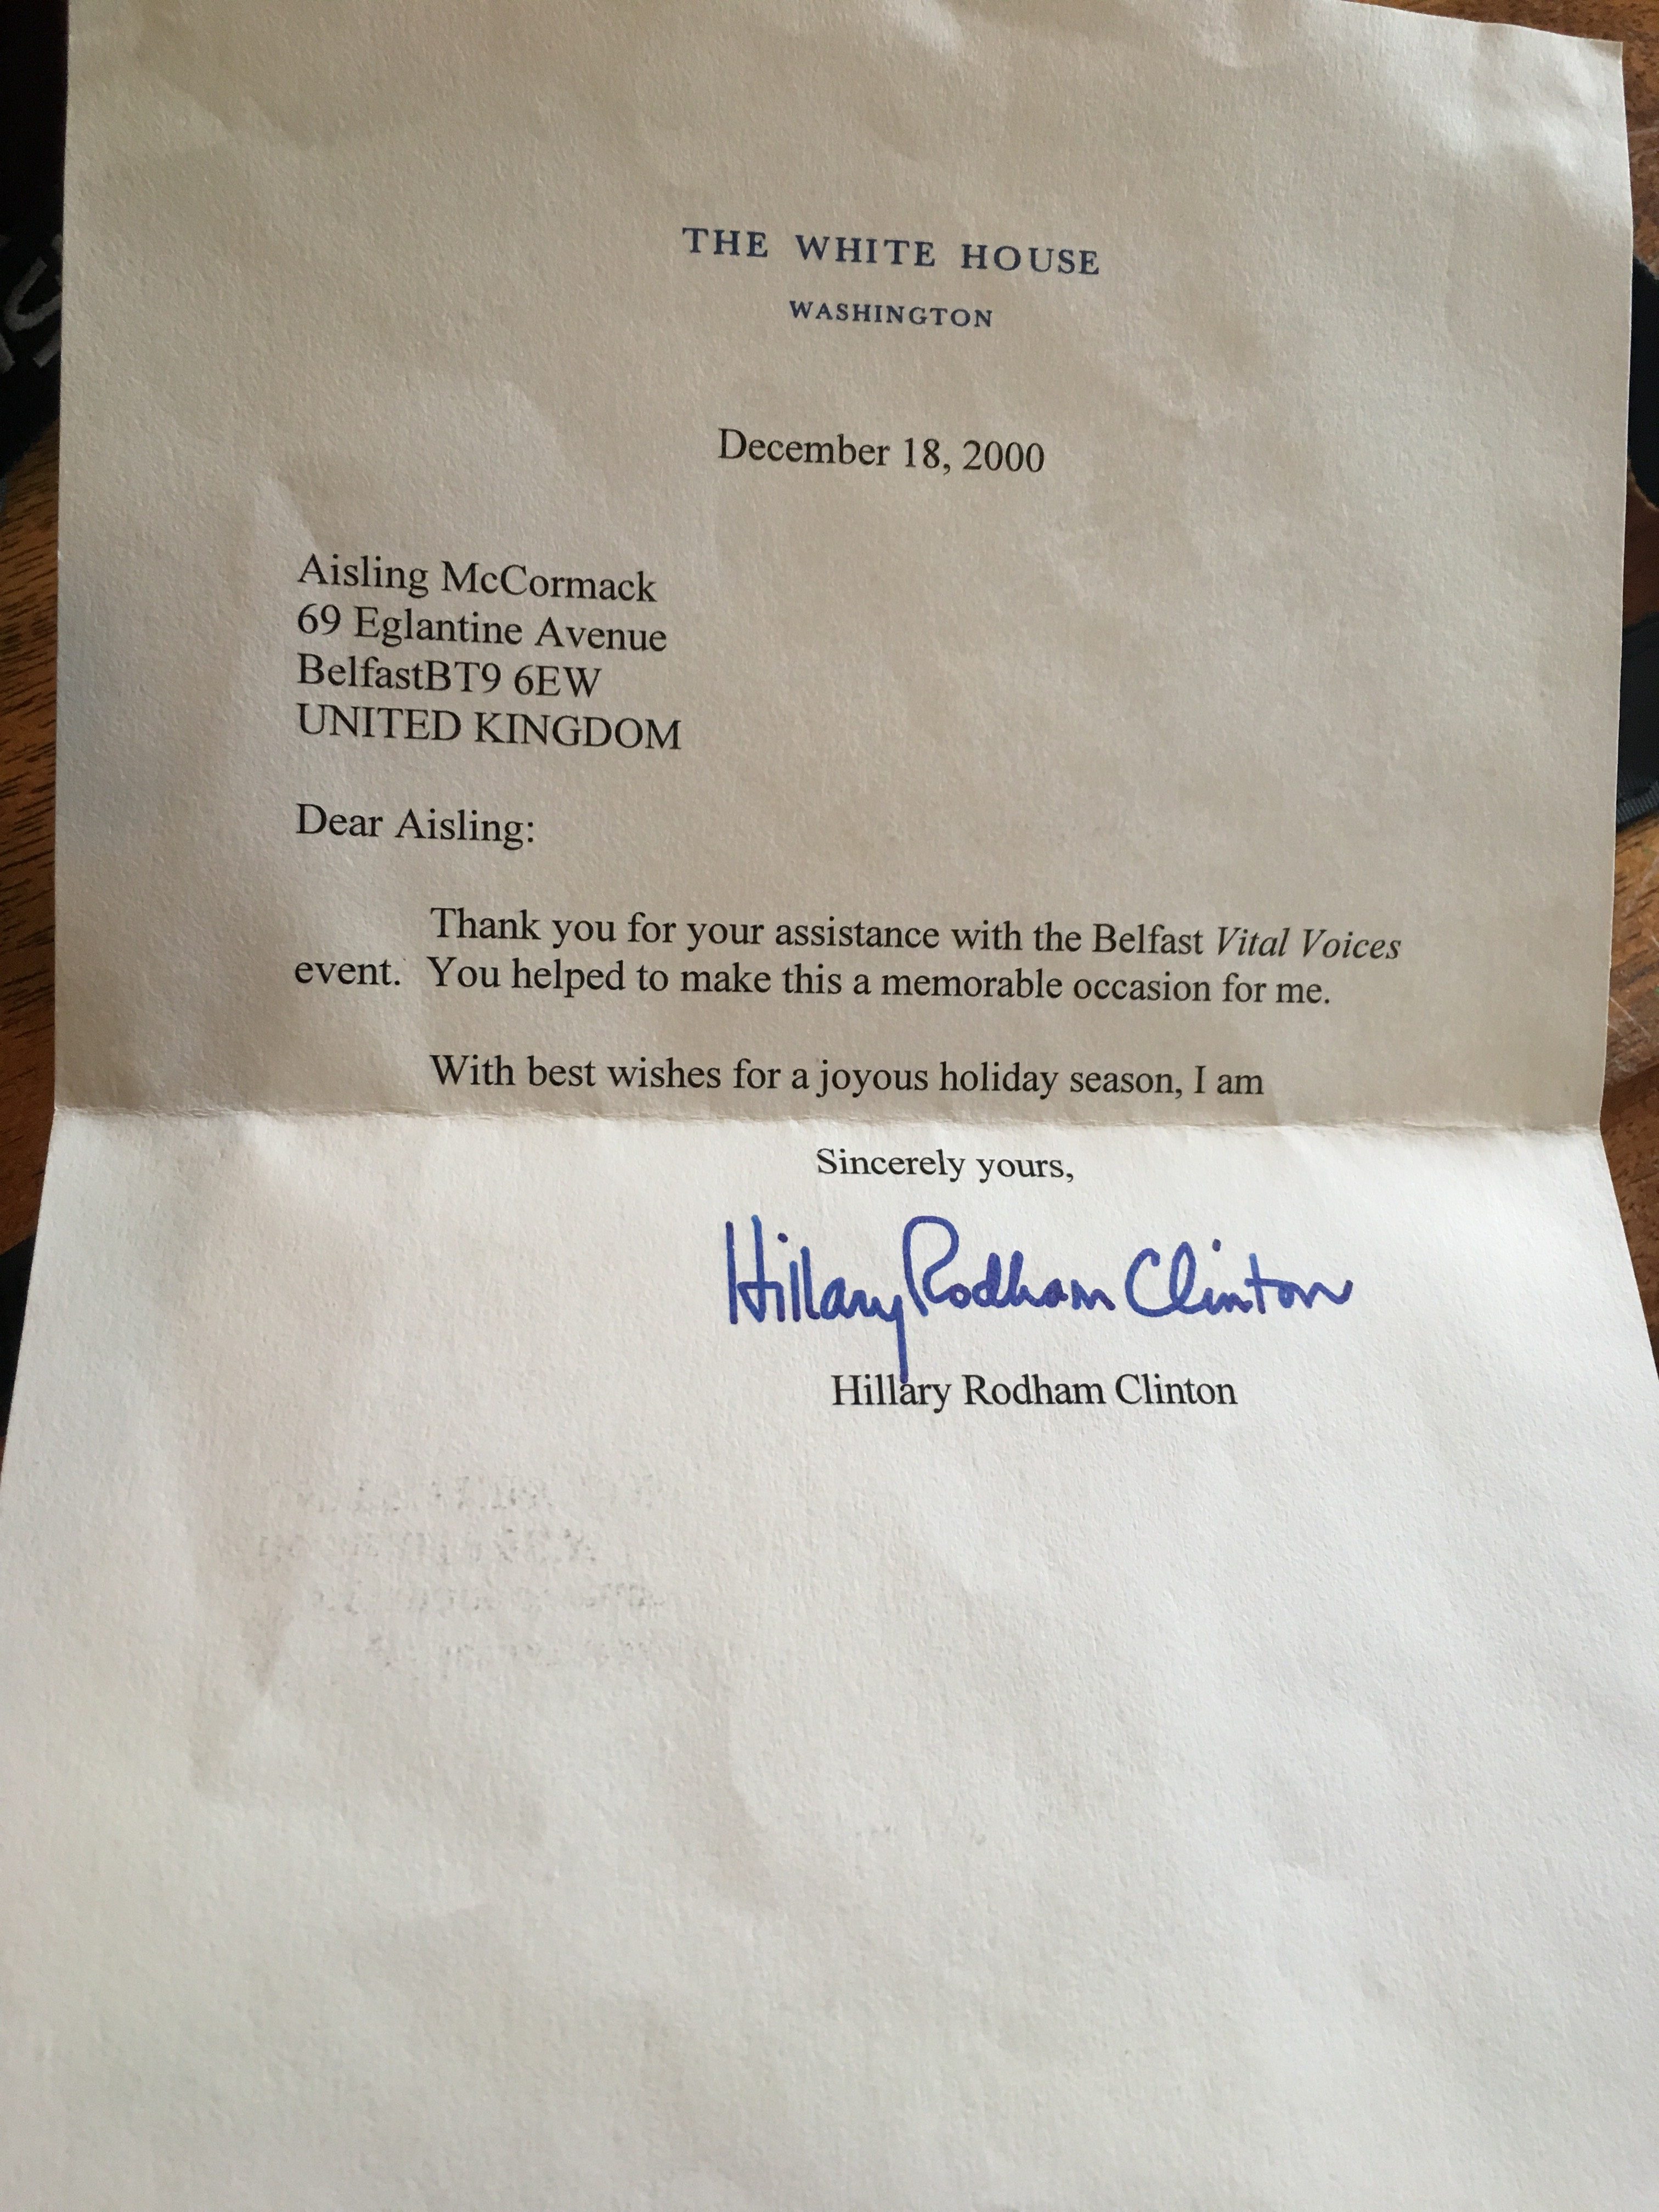 THE WHITE HOUSE
WASHINGTON
December 18, 2000
Aisling McCormack
69 Eglantine Avenue
BelfastBT9 6EW
UNITED KINGDOM
Dear Aisling:
Thank you for your assistance with the Belfast Vital Voices
event. You helped to make this a memorable occasion for me.
With best wishes for a joyous holiday season, I am
Sincerely yours,
Hillary Rodham Clinton
Hillary Rodham Clinton